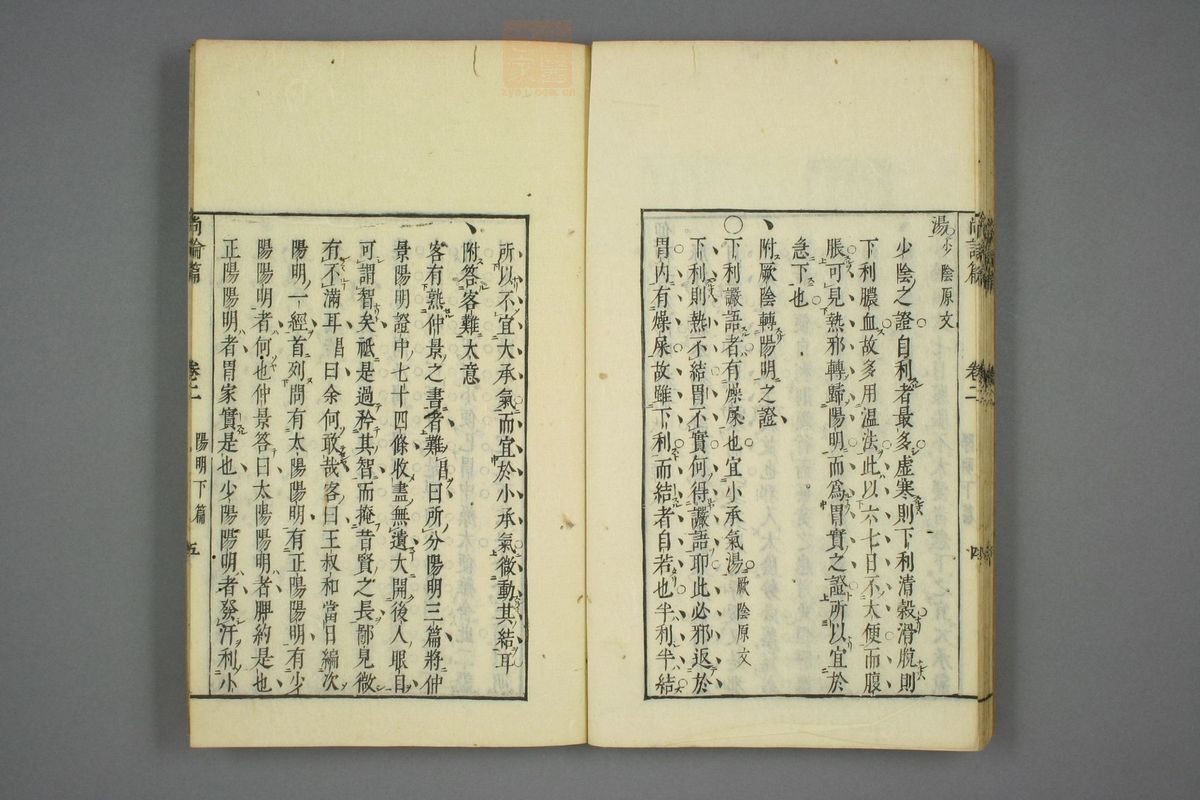 尚論篇 卷二 陽明下篇 四
湯 少陰原文
少陰之證自利者最多虛寒則下利清穀滑脫則
下利膿血故多用温法此以六七日不大便而腹
脹可見熱邪轉歸陽明而爲胃實之證所以宜於
急下也
附厥陰轉陽明之證
○下利讝語者有燥屎也宜小承氣湯 厥陰原文
下利則熱不結胃不實何得讝語耶此必邪返於
胃内有燥屎故雖下利而結者自若也半利半結
所以不宜大承氣而宜於小承氣微動其結耳
附答客難大意
客有熟仲景之書者難昌曰所分陽明三篇將仲
景陽明證中七十四條收盡無遺大開後人眼目
可謂智矣祗是過矜其智而掩昔賢之長鄙見微
有不滿耳昌曰余何敢哉客曰王叔和當日編次
陽明一經首列問有太陽陽明有正陽陽明有少
陽陽明者何也仲景答曰太陽陽明者脾約是也
正陽陽明者胃家實是也少陽陽明者發汗利小
尚論篇 卷二 陽明下篇 五